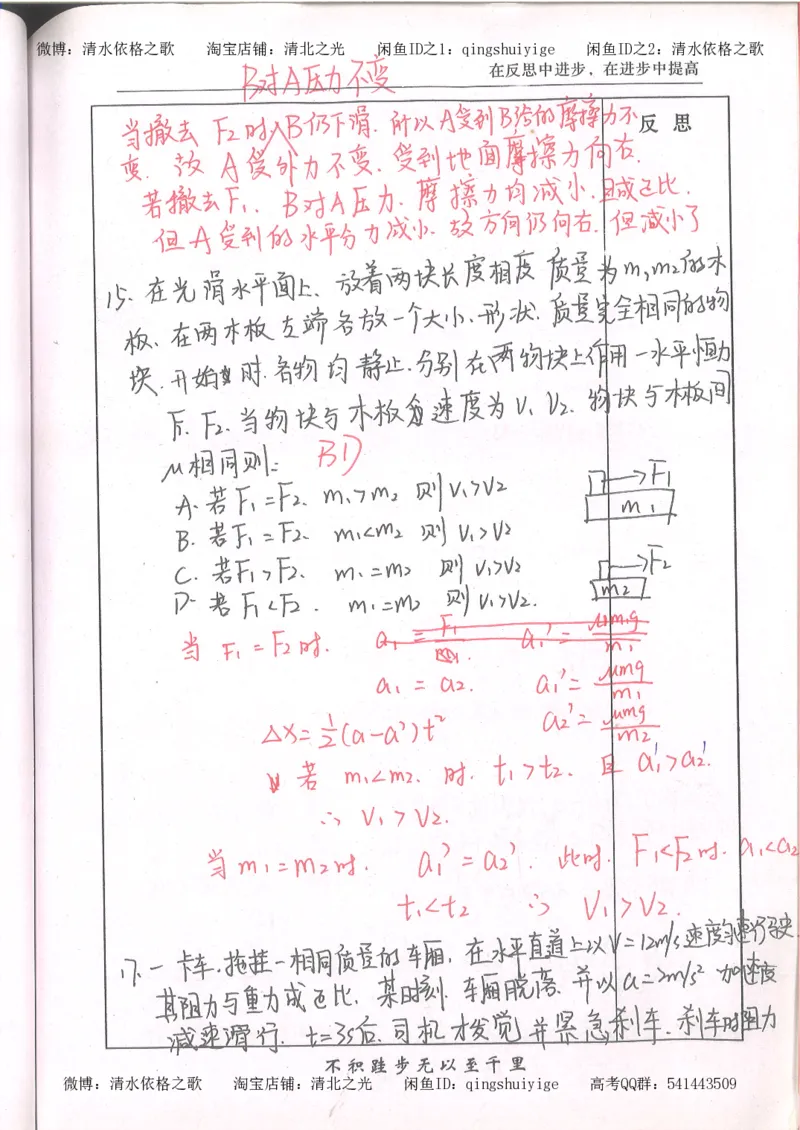 微博：清水依格之歌 淘宝店铺：清北之光 闲鱼ID之1：qingshuiyige 闲鱼ID之2：清水依格之歌
在反思中进步，在进步中提高
B对A压力不变
反思
当撤去 F2时，B仍下滑，所以A受到B给的摩擦力不
变，故 A受外力不变，受到地面摩擦力向右.
若撤去F1、B对A压力、摩擦力均减小，且成正比.
但A受到的水平分力成小，故方向仍向右，但减小了
15. 在光滑水平面上、放着两块长度相度 质量为m1m2的木
板、在两木板左端各放一个大小、形状、质量完全相同的物
块，开始时，各物均静止，分别在两物块上作用一水平恒力
F1、F2，当物块与木板 速度为V1 V2，物块与木板间
μ相同则： BD
A. 若F1=F2、m1>m2 则V1>V2
B. 若F1=F2、 m1<m2 则 V1>V2
C. 若F1>F2、 m1=m2 则V1>V2
D. 若F1<F2、 m1=m2 则V1>V2.
F1
m1
F2
m2
当 F1=F2时. a1 = F1 a1' = μm1g/m1
a1 = a2. a1' = μmg/m1
Δx = 1/2(a-a')t² a2' = μmg/m2
若 m1<m2. 时. t1>t2. 且 a1'>a2'.
∴ V1>V2.
当m1=m2时. a1'=a2'. 此时. F1<F2时. a1<a2
t1<t2 ∴ V1>V2.
17. 一卡车，拖挂一相同质量的车厢，在水平直道上以V=12m/s速度匀速行驶
其阻力与重力成正比，某时刻，车厢脱落，并以a=2m/s²加速度
减速滑行，t=3s后，司机才发觉并紧急刹车，刹车时阻力
不积跬步无以至千里
微博：清水依格之歌 淘宝店铺：清北之光 闲鱼ID：qingshuiyige 高考QQ群：541443509